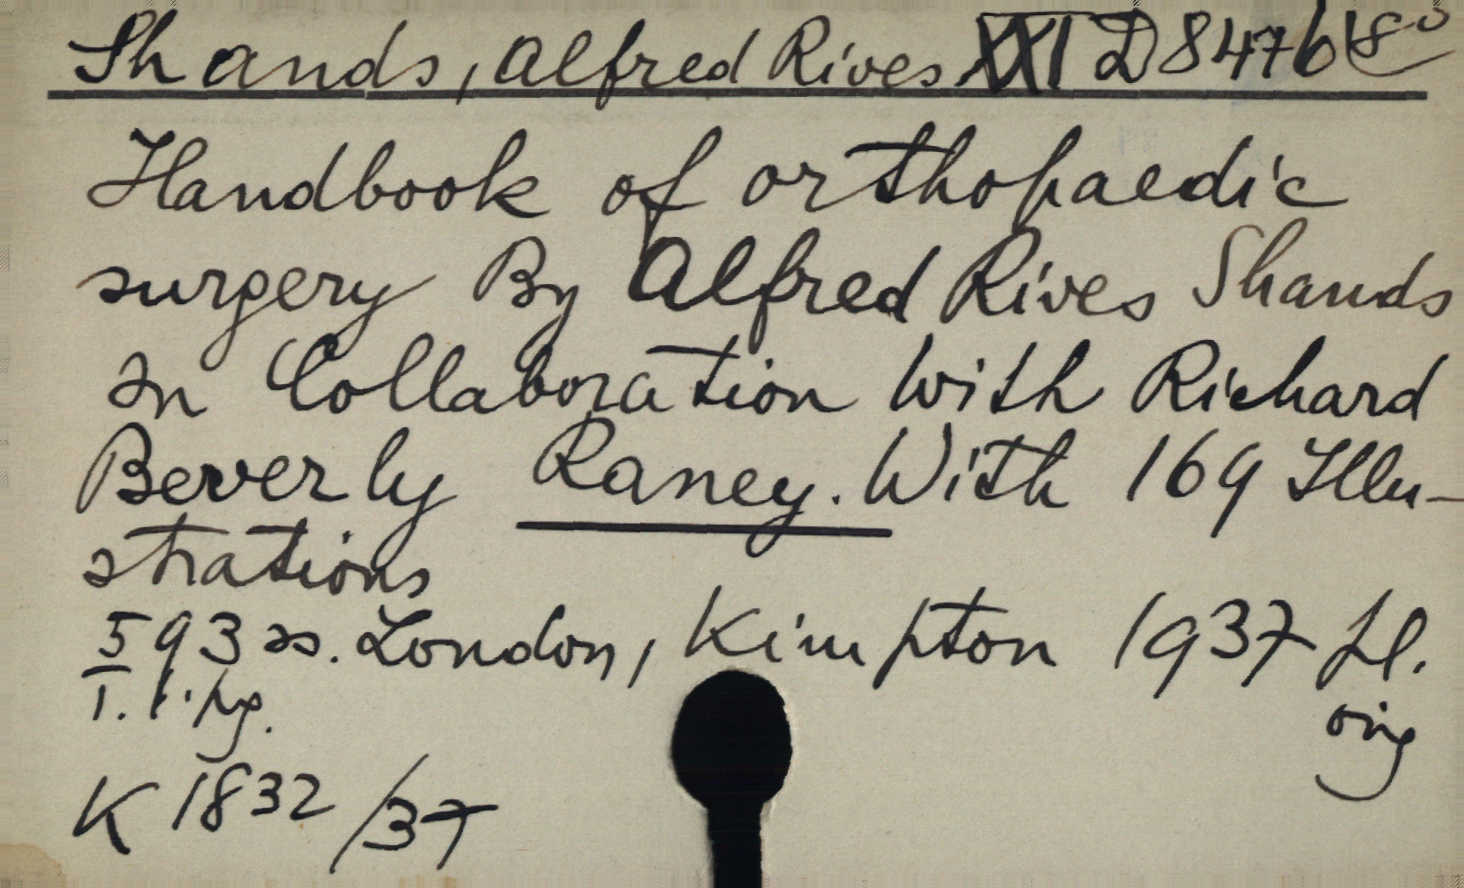 Shands, Alfred Rives XXI D 8476 8°
Handbook of orthopaedic
surgery By Alfred Rives Shands
In Collaboration With Richard
Beverly Raney. With 169 Illu-
strations
593 ss. London, Kimpton 1937 Ll.
orig
K 1832/37